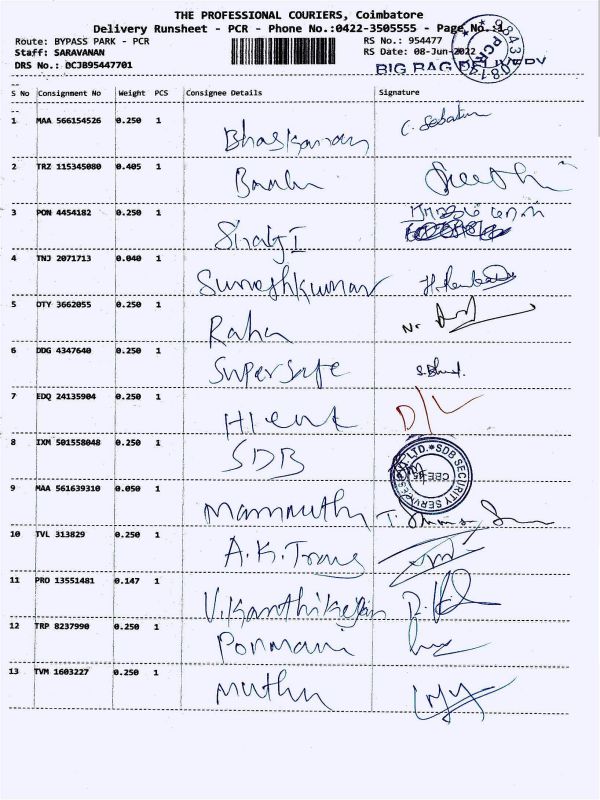 THE PROFESSIONAL COURIERS, Coimbatore
Delivery Runsheet - PCR - Phone No.:0422-3505555 - Page No.:1
Route: BYPASS PARK - PCR RS No.: 954477
Staff: SARAVANAN RS Date: 08-Jun-2022
DRS No.: DCJB95447701 BIG BAG
S No Consignment No Weight PCS Consignee Details Signature
1 MAA 566154526 0.250 1 Bhaskaran C. Sebatin
2 TRZ 115345080 0.405 1
3 PON 4454182 0.250 1
4 TNJ 2071713 0.040 1 Sureshkumar
5 OTY 3662055 0.250 1 Raha
6 DDG 4347640 0.250 1 Supersafe
7 EDQ 24135904 0.250 1 D/L
8 IXM 501558048 0.250 1 SDB SDB SECURITY SERVICES LTD. CBE-45
9 MAA 561639310 0.050 1
10 TVL 313829 0.250 1 A.K. Trans
11 PRO 13551481 0.147 1 V. Kanthikeyan
12 TRP 8237990 0.250 1 Ponmani
13 TVM 1603227 0.250 1 Muthu